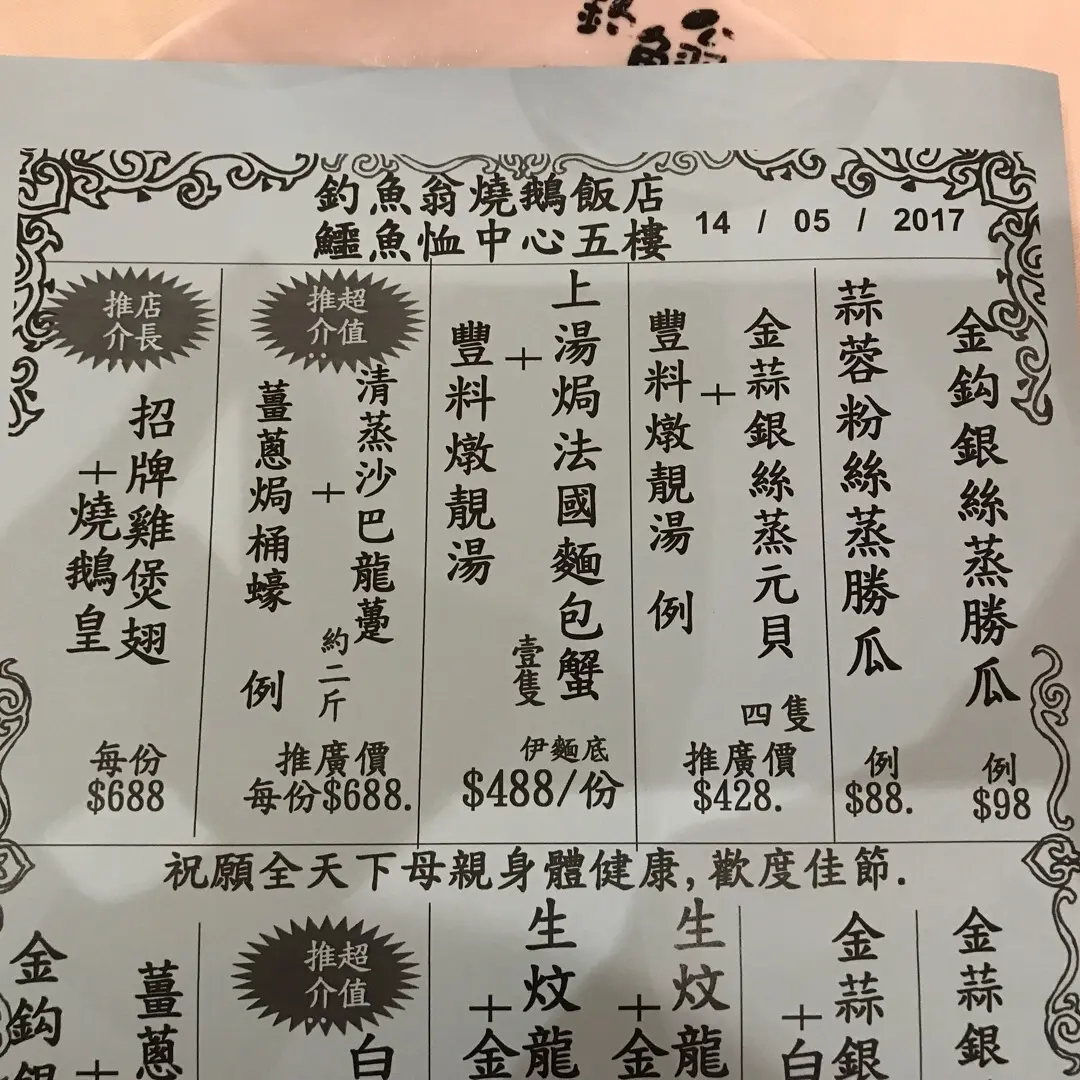 釣魚翁燒鵝飯店
鱷魚恤中心五樓
14 / 05 / 2017
金鈎銀絲蒸勝瓜
例
$98
蒜蓉粉絲蒸勝瓜
例
$88.
金蒜銀絲蒸元貝
四隻
+
豐料燉靚湯 例
推廣價
$428.
上湯焗法國麵包蟹
壹隻
+
豐料燉靚湯
伊麵底
$488/份
超值
推介
清蒸沙巴龍躉
約二斤
+
薑蔥焗桶蠔 例
推廣價
每份$688.
店長
推介
招牌雞煲翅
+燒鵝皇
每份
$688
祝願全天下母親身體健康,歡度佳節.
金蒜銀
金蒜銀
+白
生炆龍
+金
生炆龍
+金
超值
推介
白
薑蔥
+
金鈎銀